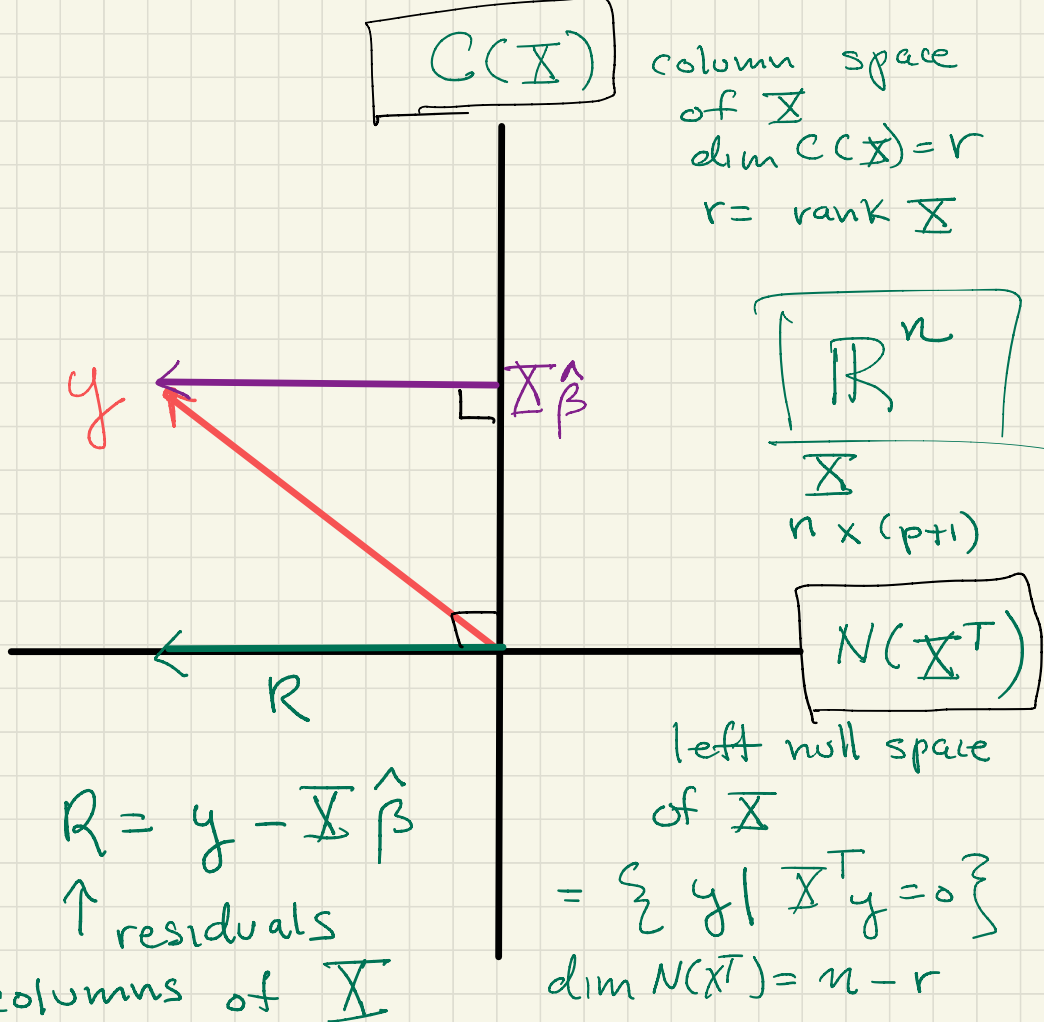 C(X)
column space
of X
dim C(X) = r
r = rank X
ℝⁿ
X
n × (p+1)
y
Xβ̂
R
N(Xᵀ)
left null space
of X
= { y | Xᵀy = 0 }
dim N(Xᵀ) = n - r
R = y - Xβ̂
↑ residuals
columns of X